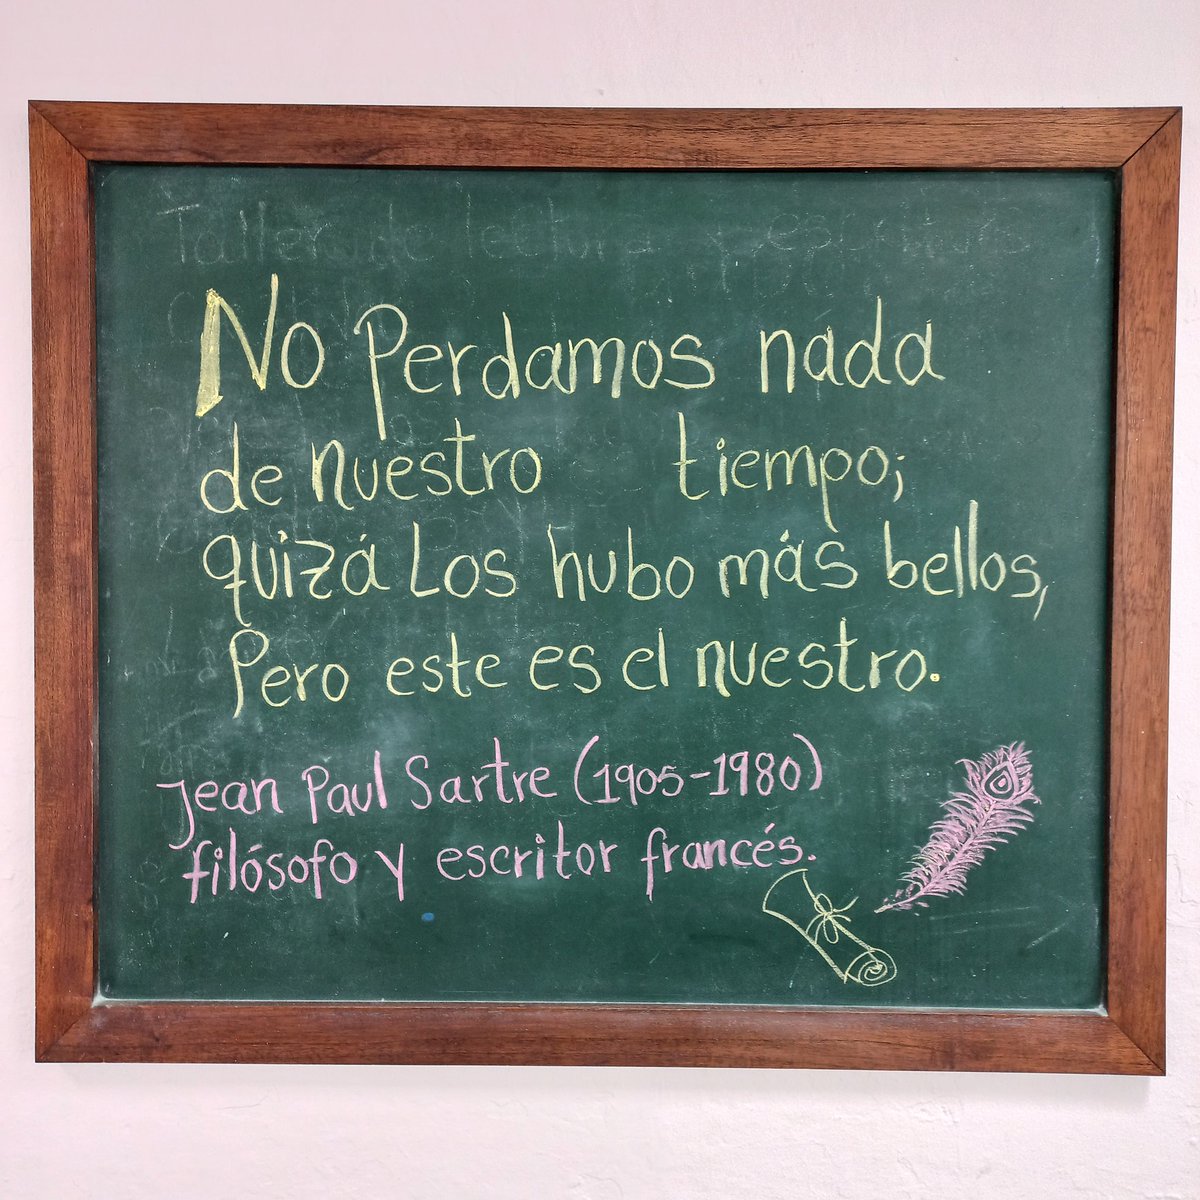 Taller de lectura
No Perdamos nada
de nuestro tiempo;
quizá Los hubo más bellos,
Pero este es el nuestro.
Jean Paul Sartre (1905-1980)
filósofo y escritor francés.